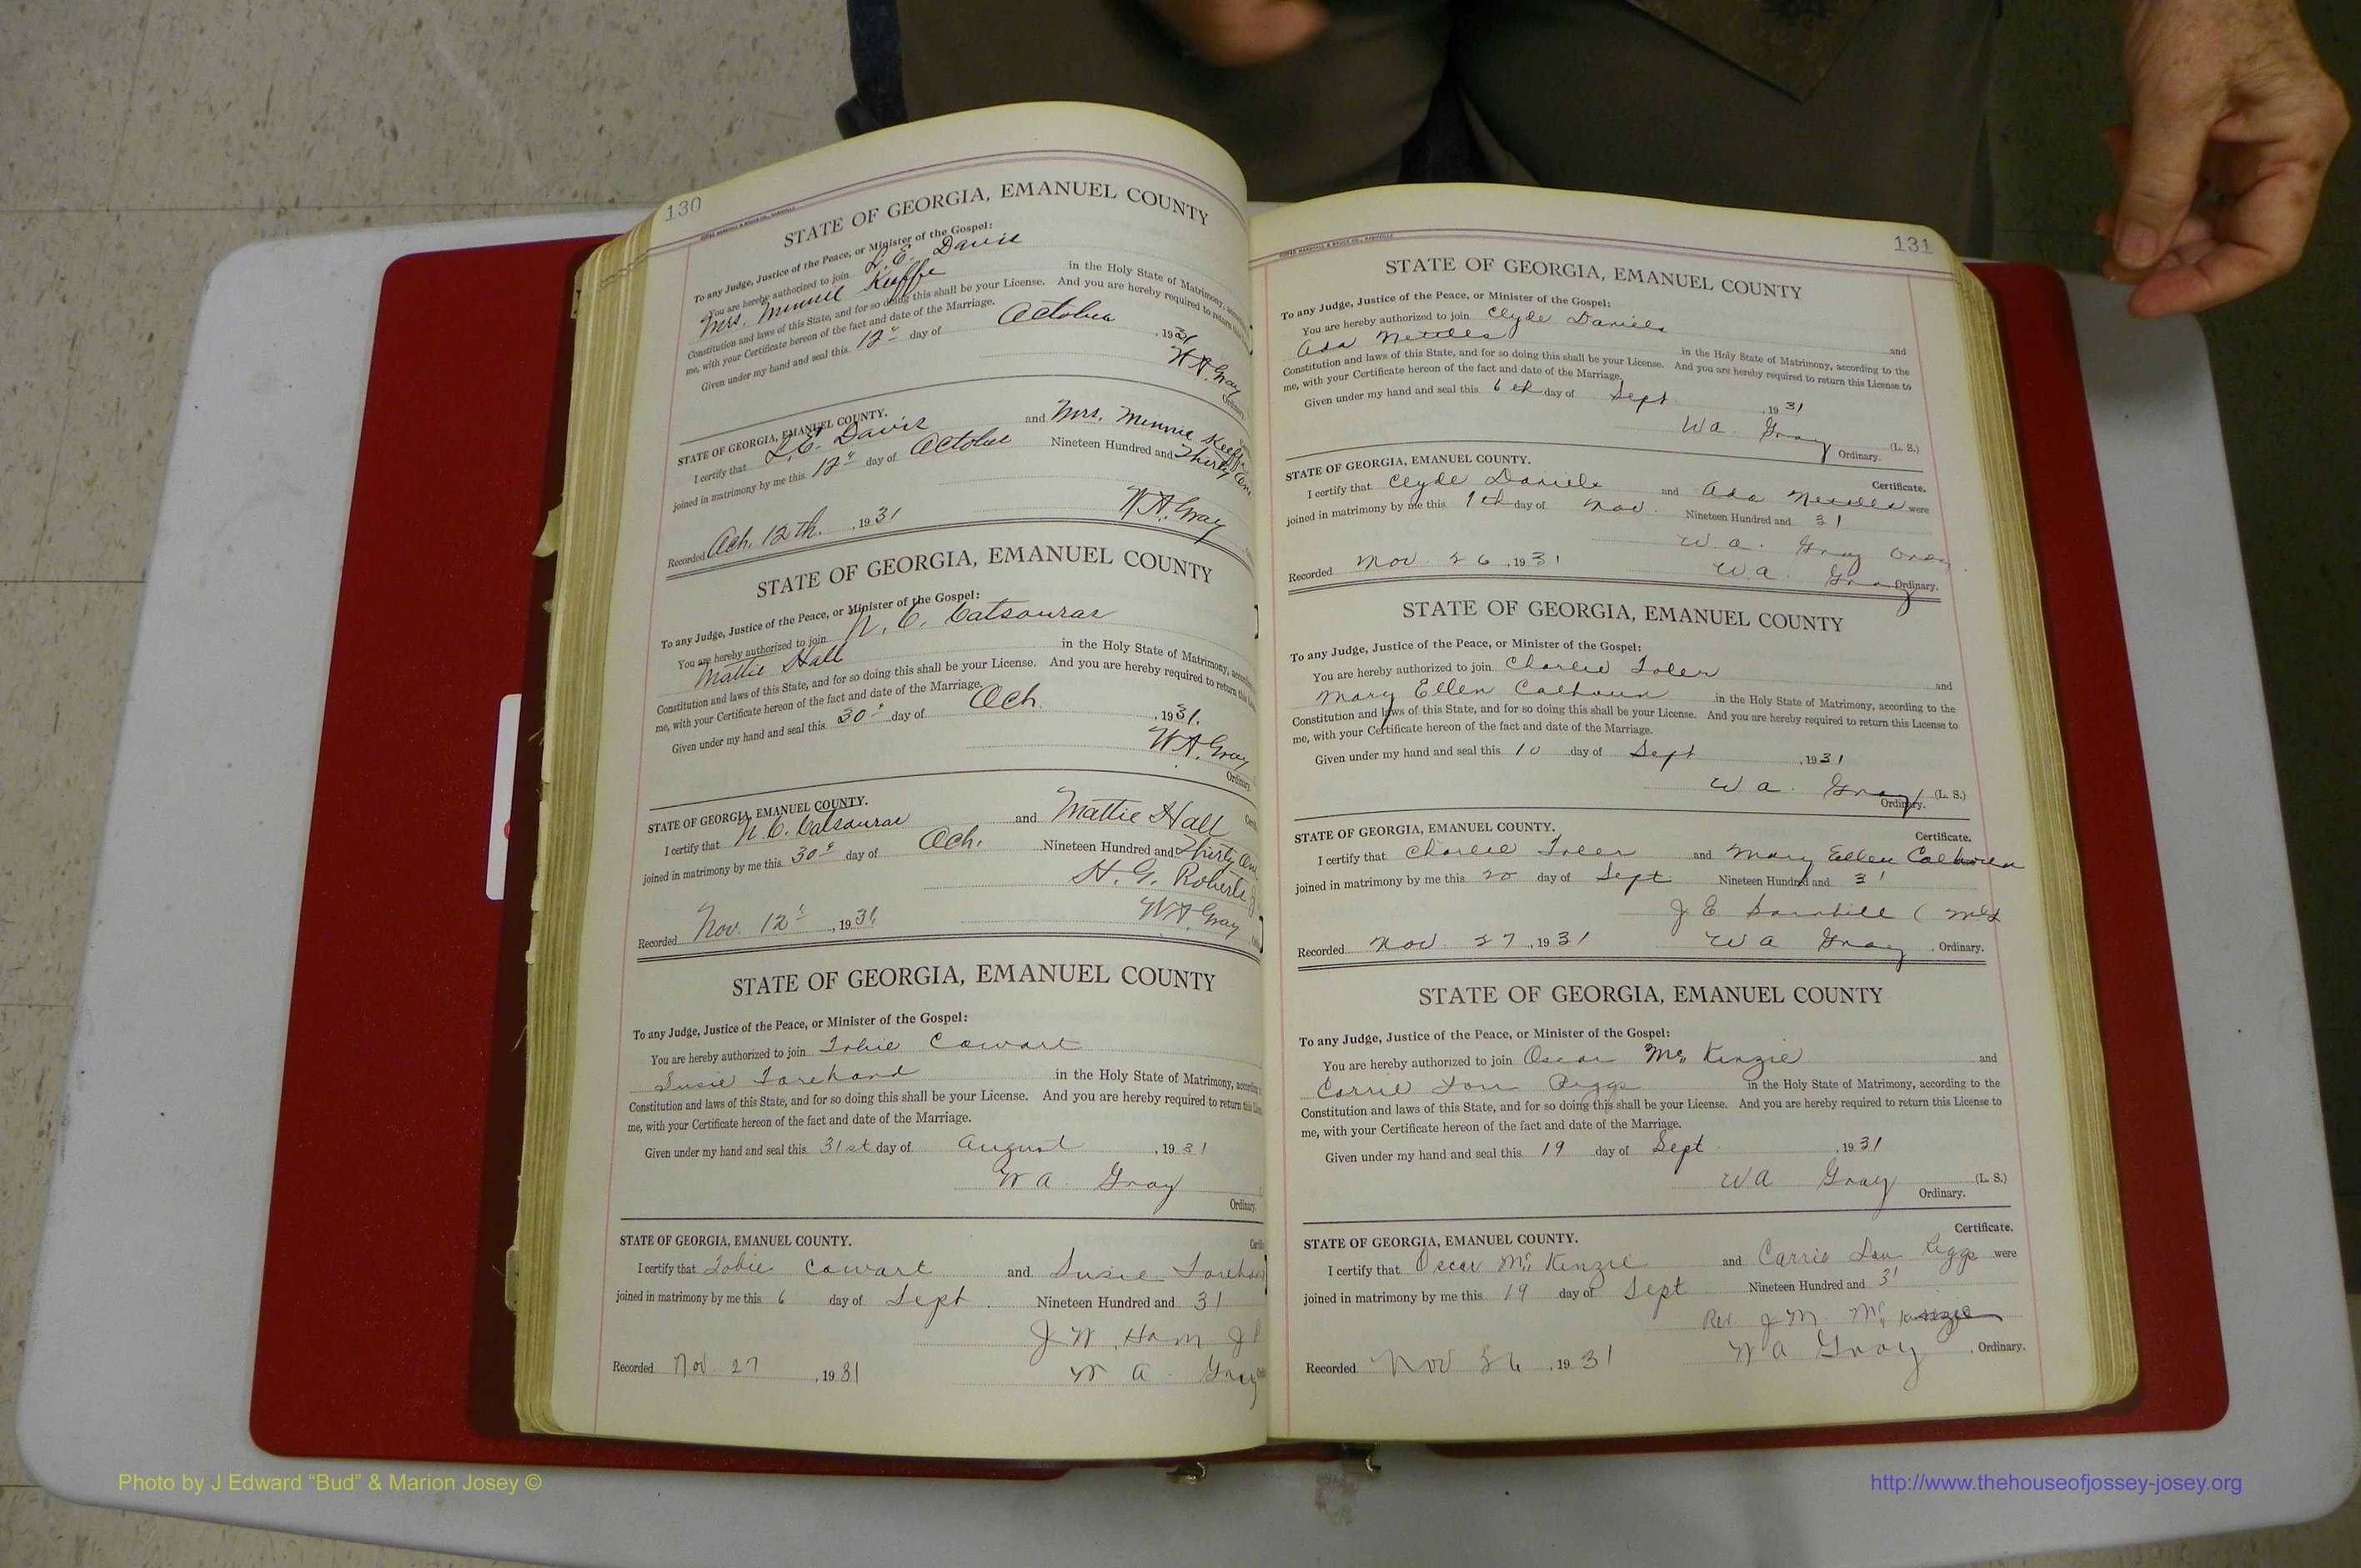 130
STATE OF GEORGIA, EMANUEL COUNTY
To any Judge, Justice of the Peace, or Minister of the Gospel:
You are hereby authorized to join L. E. Davis
Mrs. Minnie Keiffe in the Holy State of Matrimony,
Constitution and laws of this State, and for so doing this shall be your License. And you are hereby required to return
me, with your Certificate hereon of the fact and date of the Marriage.
Given under my hand and seal this 12" day of October, 1931
W. A. Gray
Ordinary.
STATE OF GEORGIA, EMANUEL COUNTY.
I certify that L. E. Davis and Mrs. Minnie Keiffe
joined in matrimony by me this 12" day of October Nineteen Hundred and Thirty One
W. A. Gray
Recorded Och. 12th. , 1931
STATE OF GEORGIA, EMANUEL COUNTY
To any Judge, Justice of the Peace, or Minister of the Gospel:
You are hereby authorized to join N. C. Catsouras
Mattie Hall in the Holy State of Matrimony,
Constitution and laws of this State, and for so doing this shall be your License. And you are hereby required to return this
me, with your Certificate hereon of the fact and date of the Marriage.
Given under my hand and seal this 30" day of Och. , 1931.
W. A. Gray
Ordinary.
STATE OF GEORGIA, EMANUEL COUNTY.
I certify that N. C. Catsouras and Mattie Hall
joined in matrimony by me this 30" day of Och. Nineteen Hundred and Thirty One
H. G. Roberts
Recorded Nov. 12" , 1931. W. A. Gray
STATE OF GEORGIA, EMANUEL COUNTY
To any Judge, Justice of the Peace, or Minister of the Gospel:
You are hereby authorized to join Tobie Cowart
Susie Forehand in the Holy State of Matrimony,
Constitution and laws of this State, and for so doing this shall be your License. And you are hereby required to return this
me, with your Certificate hereon of the fact and date of the Marriage.
Given under my hand and seal this 31st day of August , 1931
W A. Gray
Ordinary.
STATE OF GEORGIA, EMANUEL COUNTY.
I certify that Tobie Cowart and Susie Foreha
joined in matrimony by me this 6 day of Sept. Nineteen Hundred and 31
J W. Ham J P
Recorded Nov. 27 , 1931 W A. Gray
131
STATE OF GEORGIA, EMANUEL COUNTY
To any Judge, Justice of the Peace, or Minister of the Gospel:
You are hereby authorized to join Clyde Daniels and
Ada Nettles in the Holy State of Matrimony, according to the
Constitution and laws of this State, and for so doing this shall be your License. And you are hereby required to return this License to
me, with your Certificate hereon of the fact and date of the Marriage.
Given under my hand and seal this 6th day of Sept , 1931
W a. Gray (L. S.)
Ordinary.
STATE OF GEORGIA, EMANUEL COUNTY. Certificate.
I certify that Clyde Daniels and Ada Nettles were
joined in matrimony by me this 1th day of Nov. Nineteen Hundred and 31
W. a. Gray
Recorded Nov. 26 , 1931 W a. Gray Ordinary.
STATE OF GEORGIA, EMANUEL COUNTY
To any Judge, Justice of the Peace, or Minister of the Gospel:
You are hereby authorized to join Charlie Toler and
Mary Ellen Calhoun in the Holy State of Matrimony, according to the
Constitution and laws of this State, and for so doing this shall be your License. And you are hereby required to return this License to
me, with your Certificate hereon of the fact and date of the Marriage.
Given under my hand and seal this 10 day of Sept , 1931
W a. Gray (L. S.)
Ordinary.
STATE OF GEORGIA, EMANUEL COUNTY. Certificate.
I certify that Charlie Toler and Mary Ellen Calhoun
joined in matrimony by me this 20 day of Sept Nineteen Hundred and 31
J E Barnhill
Recorded Nov. 27 , 1931 W a Gray , Ordinary.
STATE OF GEORGIA, EMANUEL COUNTY
To any Judge, Justice of the Peace, or Minister of the Gospel:
You are hereby authorized to join Oscar Mc Kenzie and
Carrie Lou Riggs in the Holy State of Matrimony, according to the
Constitution and laws of this State, and for so doing this shall be your License. And you are hereby required to return this License to
me, with your Certificate hereon of the fact and date of the Marriage.
Given under my hand and seal this 19 day of Sept , 1931
W a Gray (L. S.)
Ordinary.
STATE OF GEORGIA, EMANUEL COUNTY. Certificate.
I certify that Oscar Mc Kenzie and Carrie Lou Riggs were
joined in matrimony by me this 19 day of Sept Nineteen Hundred and 31
Rev. J M. Mc Kenzie
Recorded Nov 26 , 1931 W a Gray , Ordinary.
Photo by J Edward “Bud” & Marion Josey ©
http://www.thehouseofjossey-josey.org